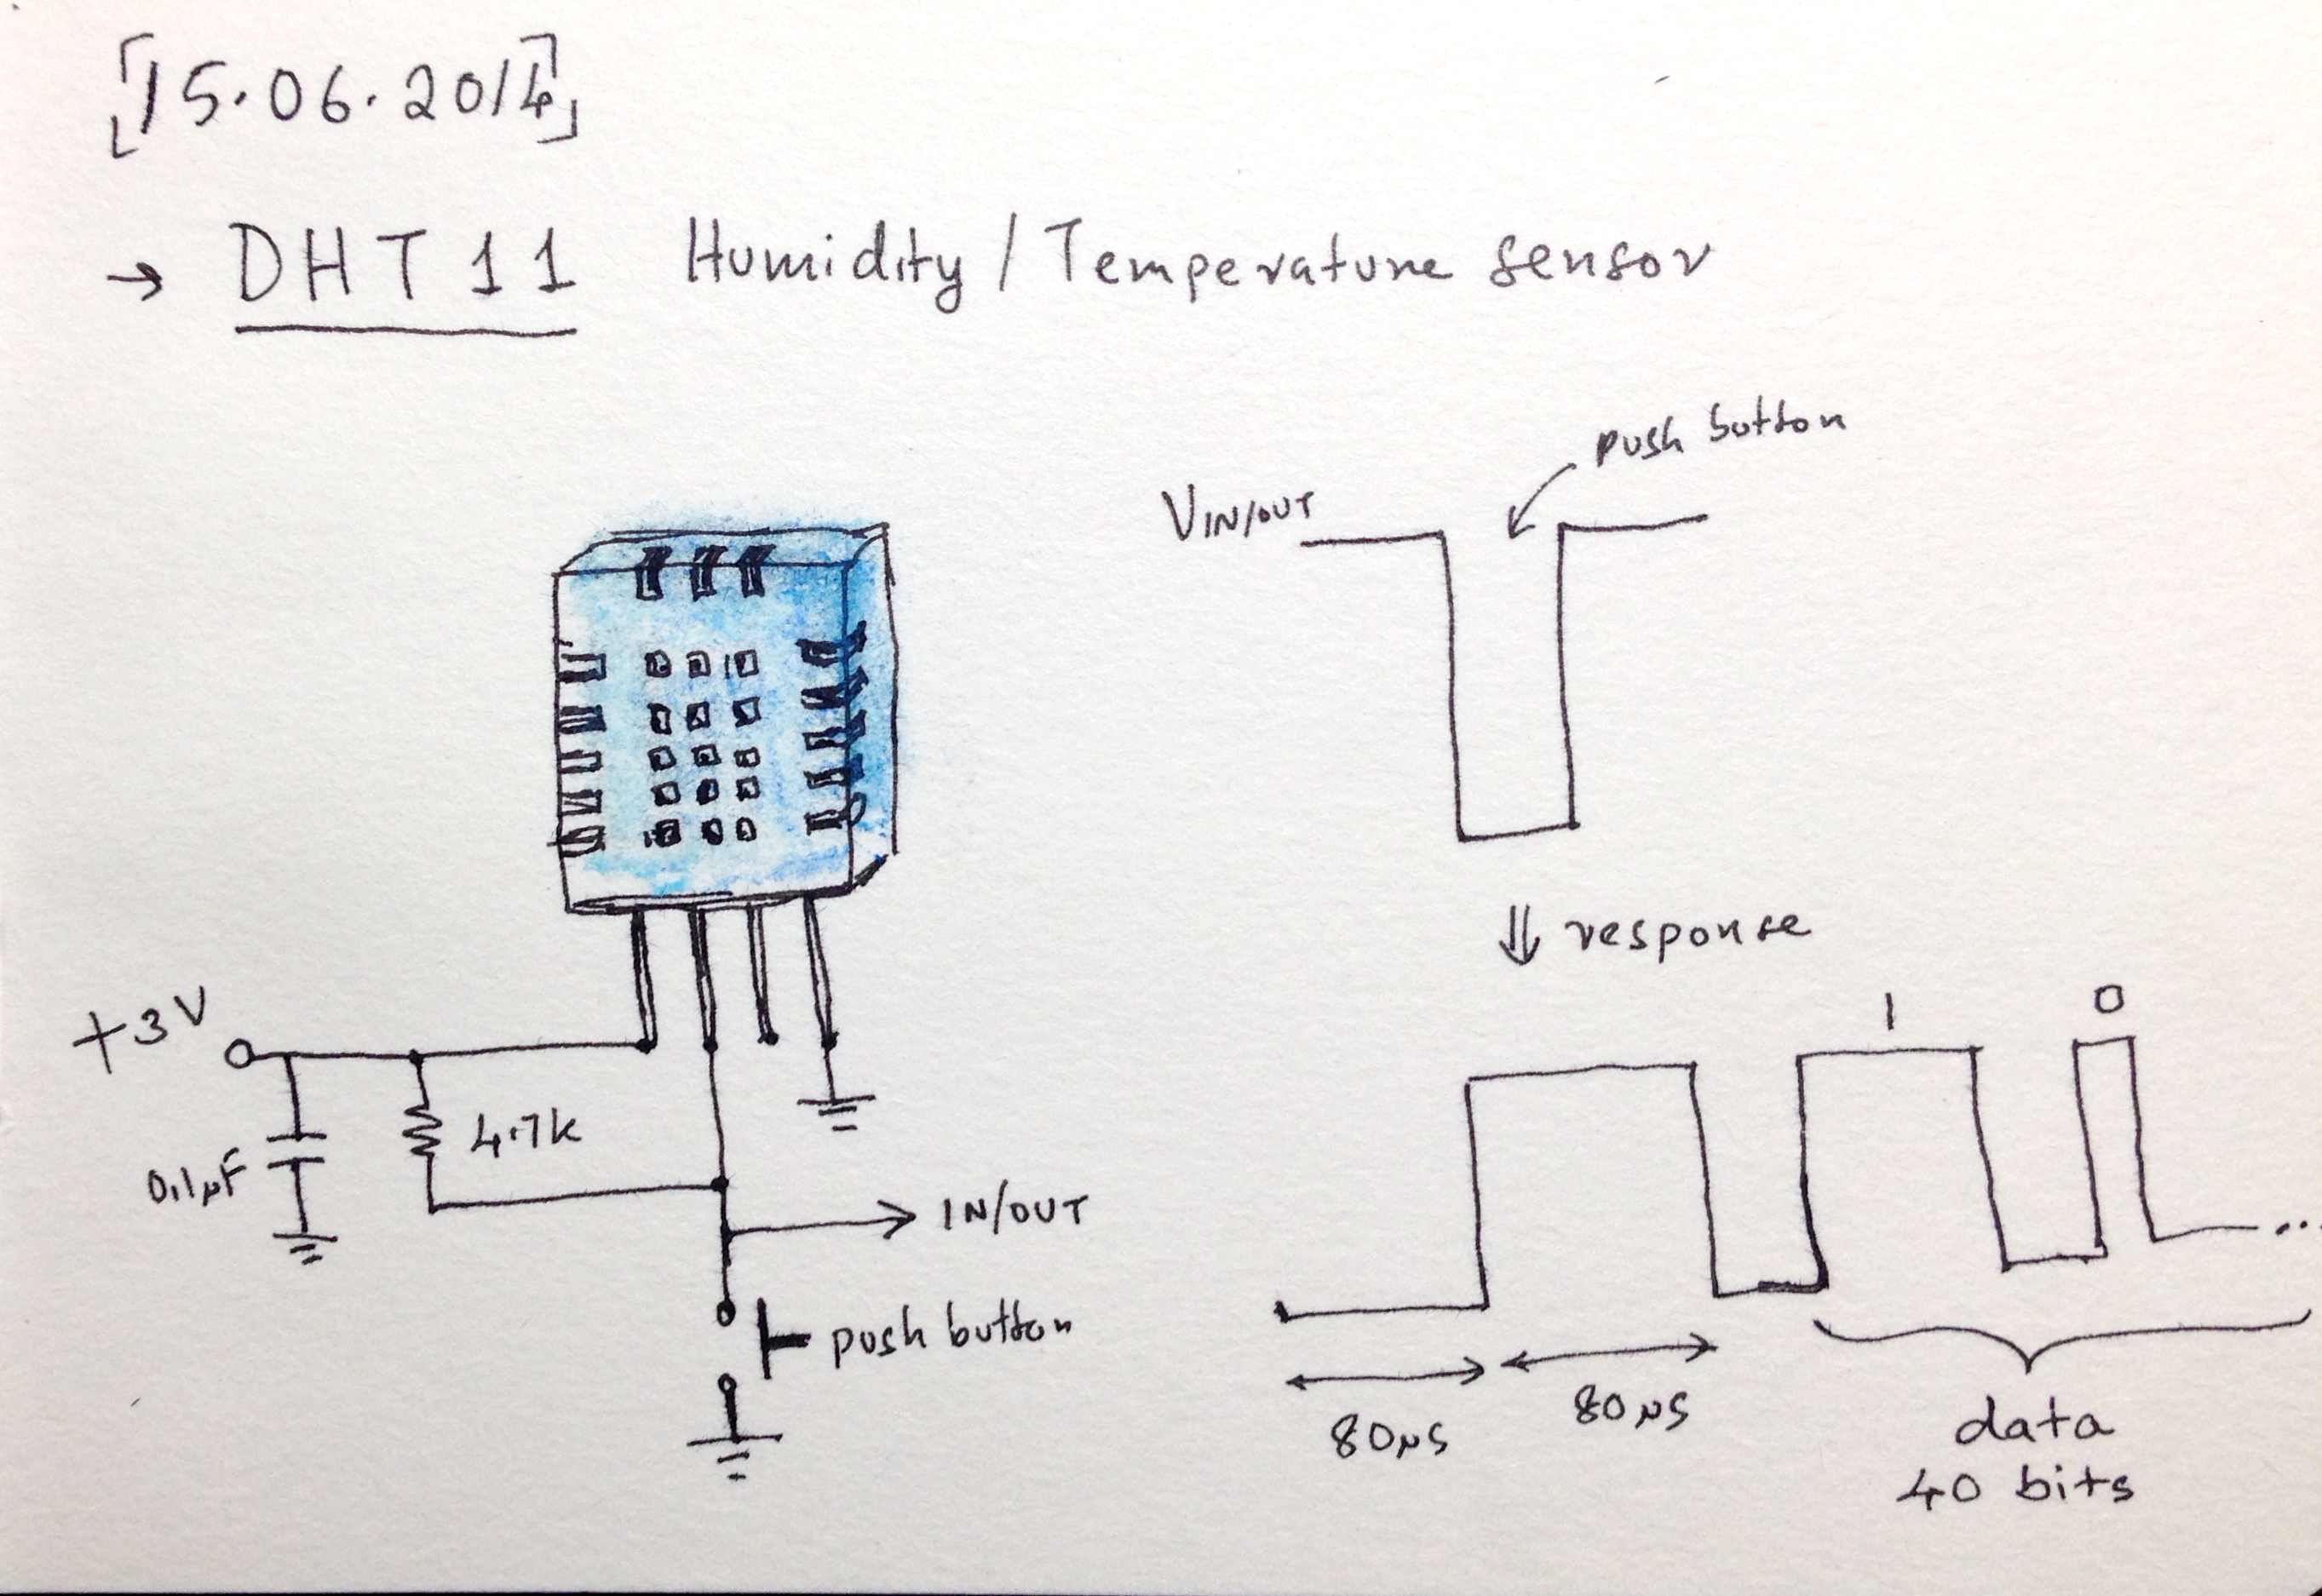 [15.06.2014]
→ DHT11 Humidity / Temperature sensor
push button
VIN/OUT
⇓ response
+3V
1 0
0.1µF
4.7k
IN/OUT
push button
80µs
80µs
...
data
40 bits